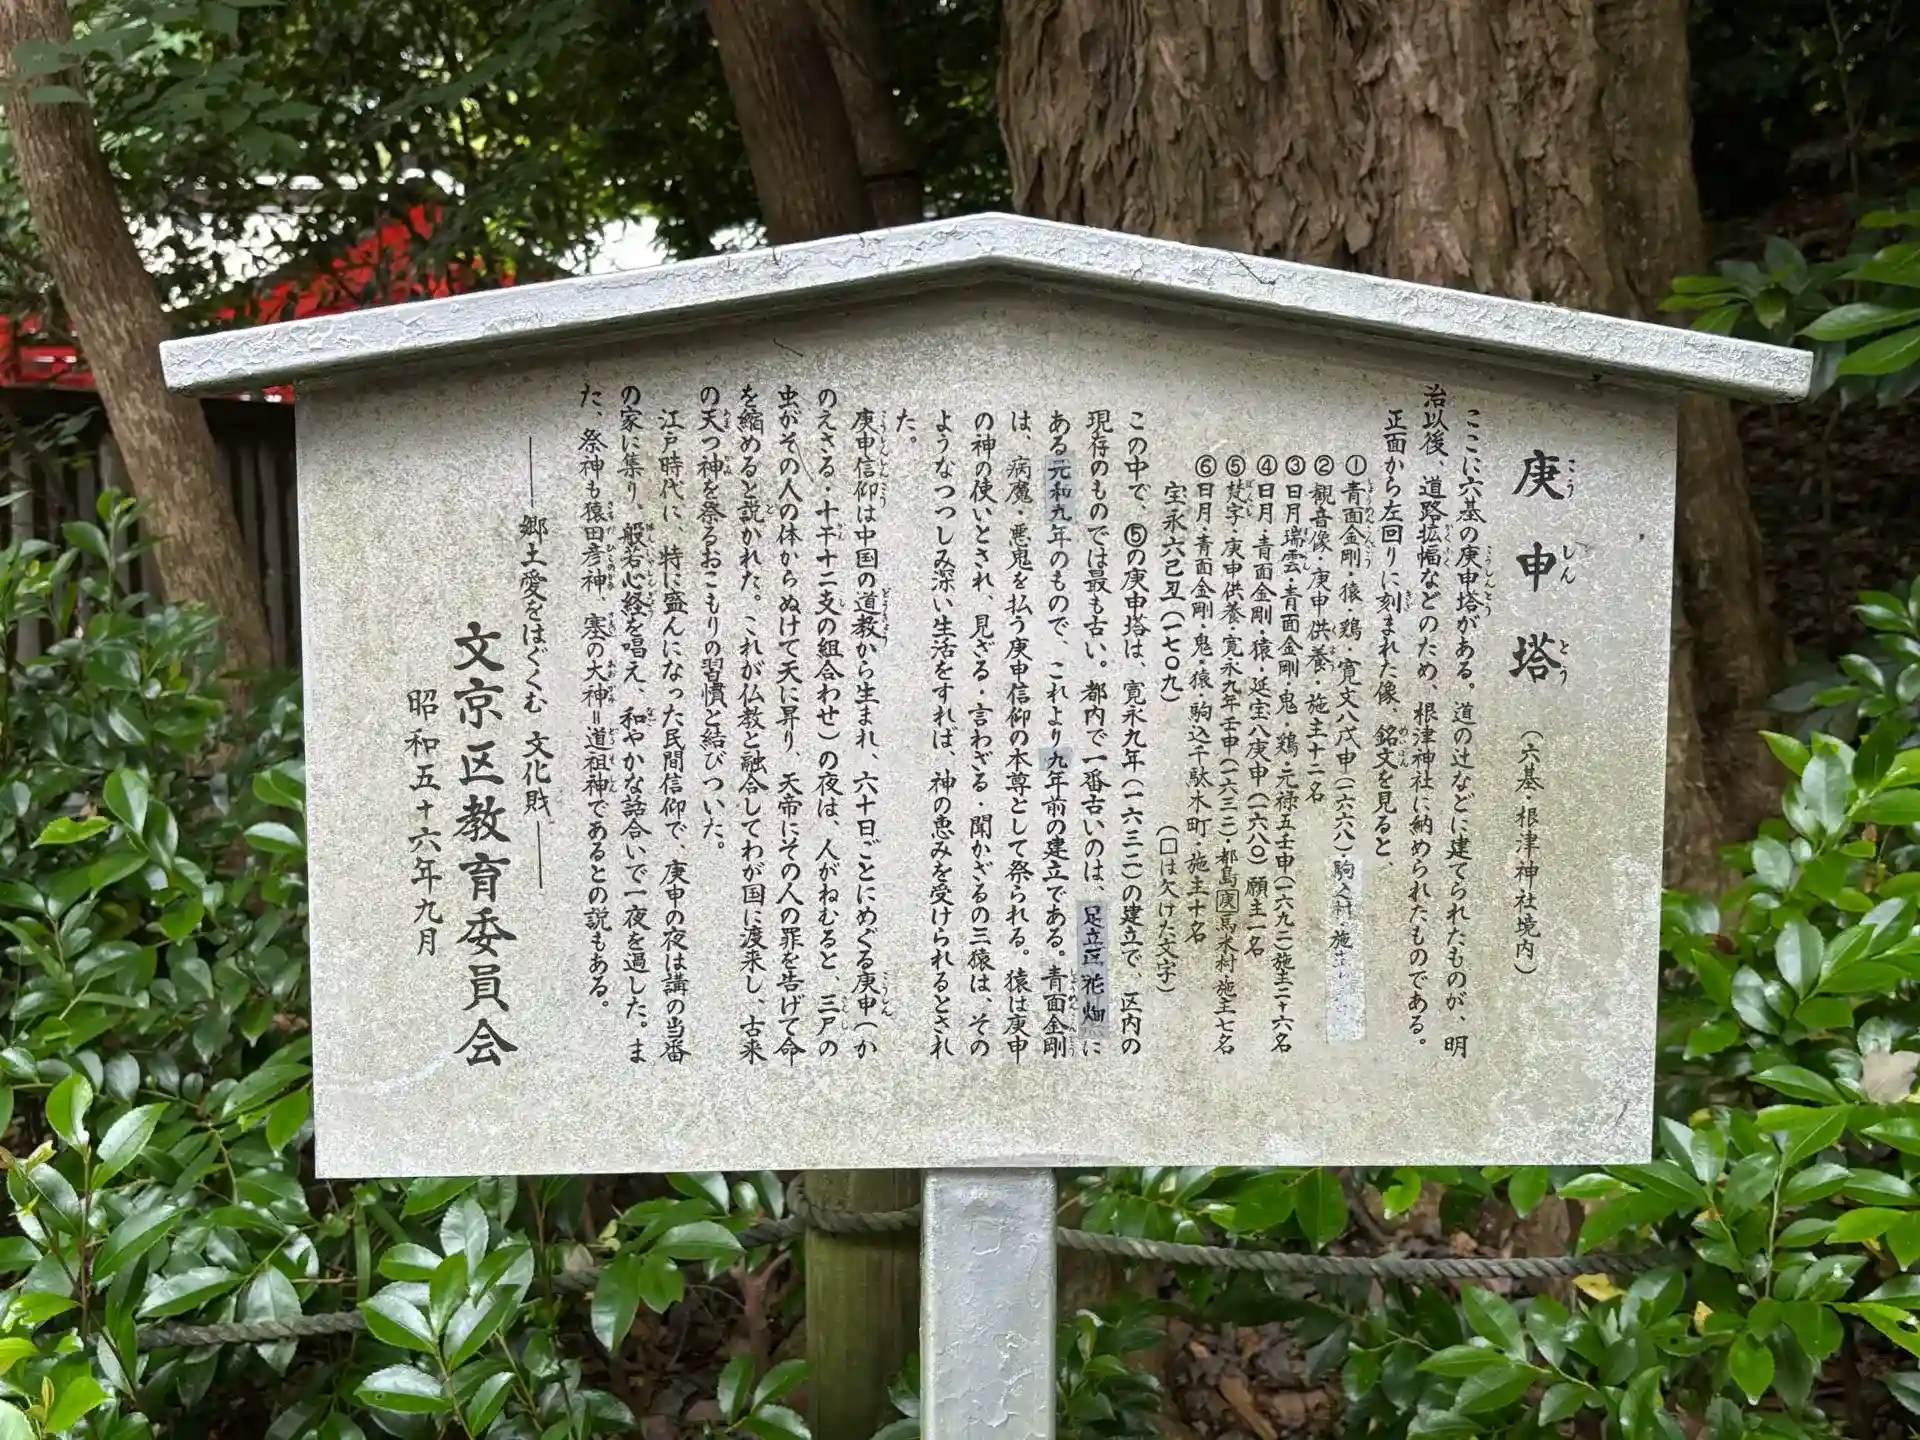 庚申塔（六基・根津神社境内）
ここに六基の庚申塔がある。道の辻などに建てられたものが、明
治以後、道路拡幅などのため、根津神社に納められたものである。
正面から左回りに刻まれた像、銘文を見ると、
①青面金剛・猿・鶏・寛文八戊申（一六六八）駒込村・施主
②観音像・庚申供養・施主十二名
③日月瑞雲・青面金剛・鬼・鶏・元禄五壬申（一六九二）施主二十六名
④日月・青面金剛・猿・延宝八庚申（一六八〇）願主一名
⑤梵字・庚申供養・寛永九年壬申（一六三二）・都島庚馬米村・施主七名
⑥日月・青面金剛・鬼・猿・駒込千駄木町・施主十名
宝永六己丑（一七〇九）　（□は欠けた文字）
この中で、⑤の庚申塔は、寛永九年（一六三二）の建立で、区内の
現存のものでは最も古い。都内で一番古いのは、足立区花畑に
ある元和九年のもので、これより九年前の建立である。青面金剛
は、病魔・悪鬼を払う庚申信仰の本尊として祭られる。猿は庚申
の神の使いとされ、見ざる・言わざる・聞かざるの三猿は、その
ようなつつしみ深い生活をすれば、神の恵みを受けられるとされ
た。
庚申信仰は中国の道教から生まれ、六十日ごとにめぐる庚申（か
のえさる・十干十二支の組合わせ）の夜は、人がねむると、三尸の
虫がその人の体からぬけて天に昇り、天帝にその人の罪を告げて命
を縮めると説かれた。これが仏教と融合してわが国に渡来し、古来
の天つ神を祭るおこもりの習慣と結びついた。
江戸時代に、特に盛んになった民間信仰で、庚申の夜は講の当番
の家に集り、般若心経を唱え、和やかな話合いで一夜を過した。ま
た、祭神も猿田彦神、塞の大神＝道祖神であるとの説もある。
――郷土愛をはぐくむ 文化財――
文京区教育委員会
昭和五十六年九月